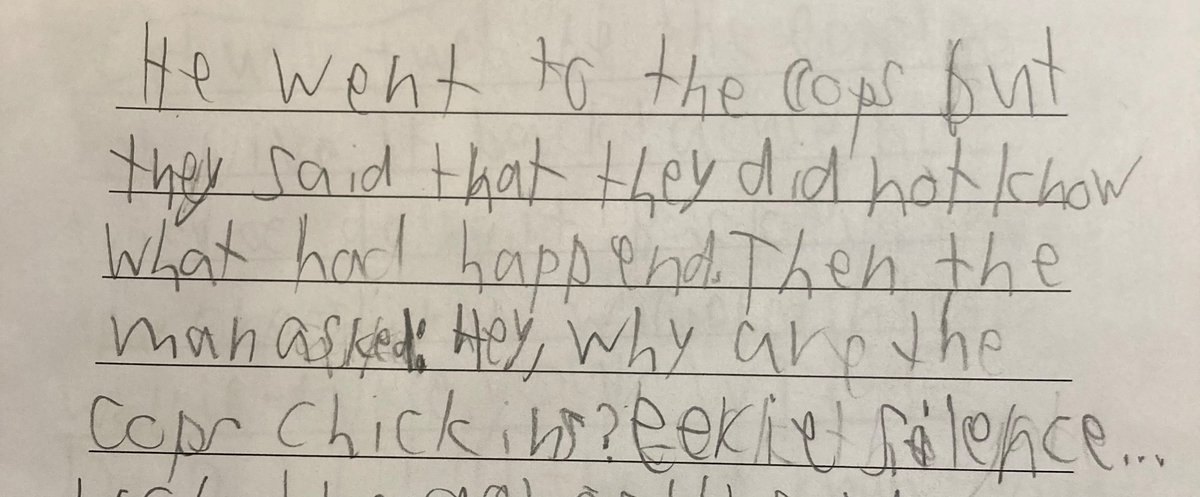 He went to the cops but
they said that they did not know
what had happend. Then the
man asked: Hey, why are the
cops chickins? silence...